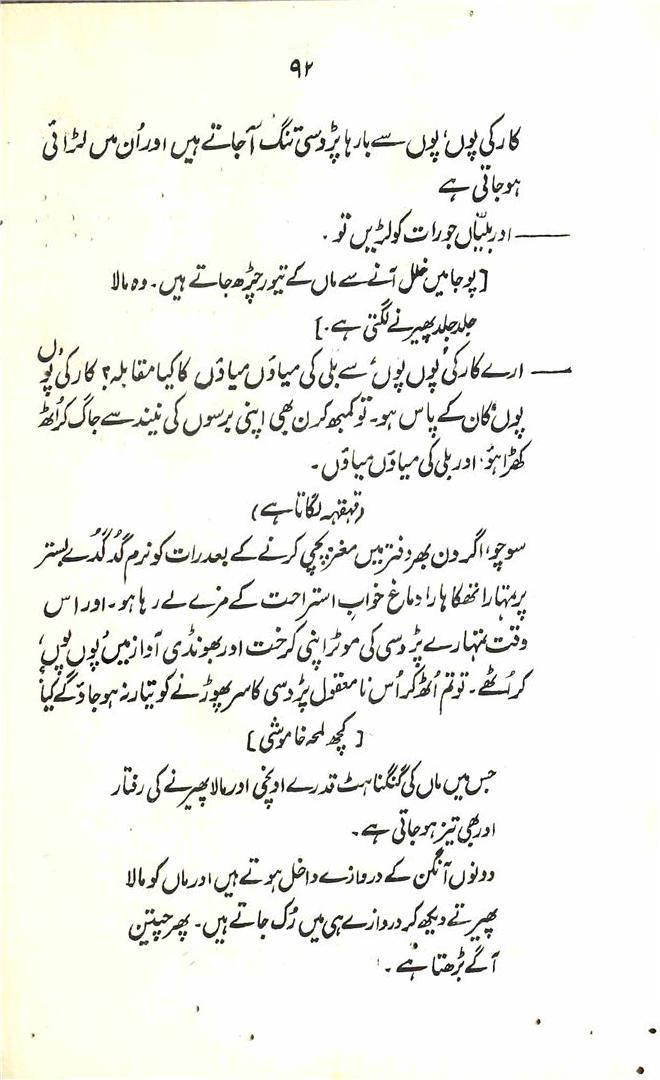 ۹۲
کار کی پوں، پوں سے بارہا پڑوسی تنگ آجاتے ہیں اور اُن میں لڑائی
ہو جاتی ہے
—— اور بلیّاں جو رات کو لڑیں تو ۔
[پوجا میں خلل آنے سے ماں کے تیور چڑھ جاتے ہیں۔ وہ مالا
جلد جلد پھیرنے لگتی ہے۔]
—— ارے کار کی ’پوں پوں‘ سے بلی کی میاؤں میاؤں کا کیا مقابلہ؟ کار کی ’پوں
پوں‘ کان کے پاس ہو۔ تو کمبھ کرن بھی اپنی برسوں کی نیند سے جاگ کر اُٹھ
کھڑا ہو، اور بلی کی میاؤں میاؤں۔
(قہقہہ لگاتا ہے)
سوچو، اگر دن بھر دفتر میں مغز پچی کرنے کے بعد رات کو نرم گُدگُدے بستر
پر تمہارا تھکا ہارا دماغ خواب استراحت کے مزے لے رہا ہو۔ اور اس
وقت تمہارے پڑوسی کی موٹر اپنی کرخت اور بھونڈی آواز میں ’پوں پوں‘
کر اُٹھے۔ تو تم اُٹھ کر اُس نامعقول پڑوسی کا سر پھوڑنے کو تیار نہ ہو جاؤ گے کیا؟
[کچھ لمحہ خاموشی]
جس میں ماں کی گنگناہٹ قدرے اونچی اور مالا پھیرنے کی رفتار
اور بھی تیز ہو جاتی ہے۔
دونوں آنگن کے دروازے داخل ہوتے ہیں اور ماں کو مالا
پھیرتے دیکھ کر دروازے ہی میں رُک جاتے ہیں۔ پھر چیتن
آگے بڑھتا ہے۔